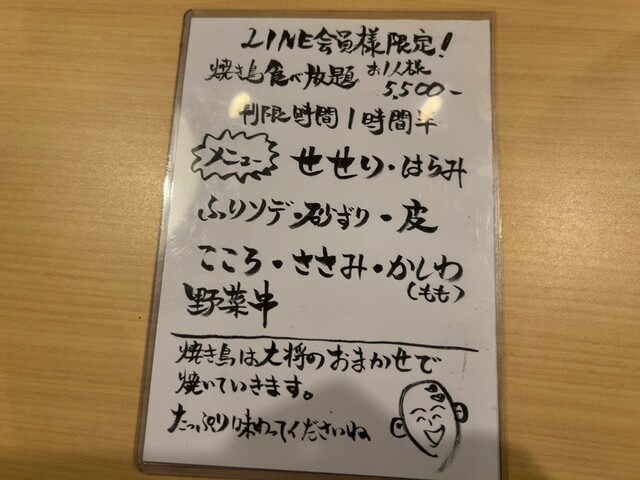 LINE会員様限定!
焼き鳥食べ放題 お1人様 5,500-
制限時間1時間半
メニュー せせり・はらみ
ふりソデ・砂ずり・皮
こころ・ささみ・かしわ
(もも)
野菜串
焼き鳥は大将のおまかせで
焼いていきます。
たっぷり味わってくださいね